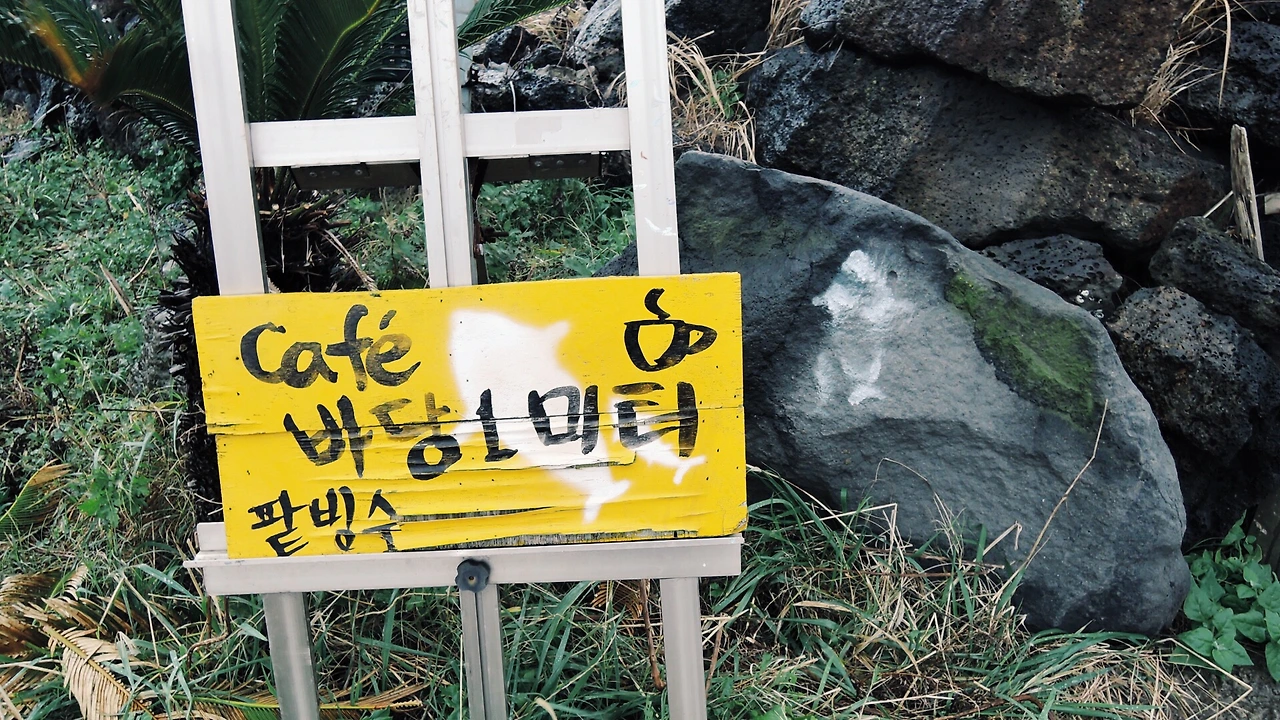 Café
바당1미터
팥빙수